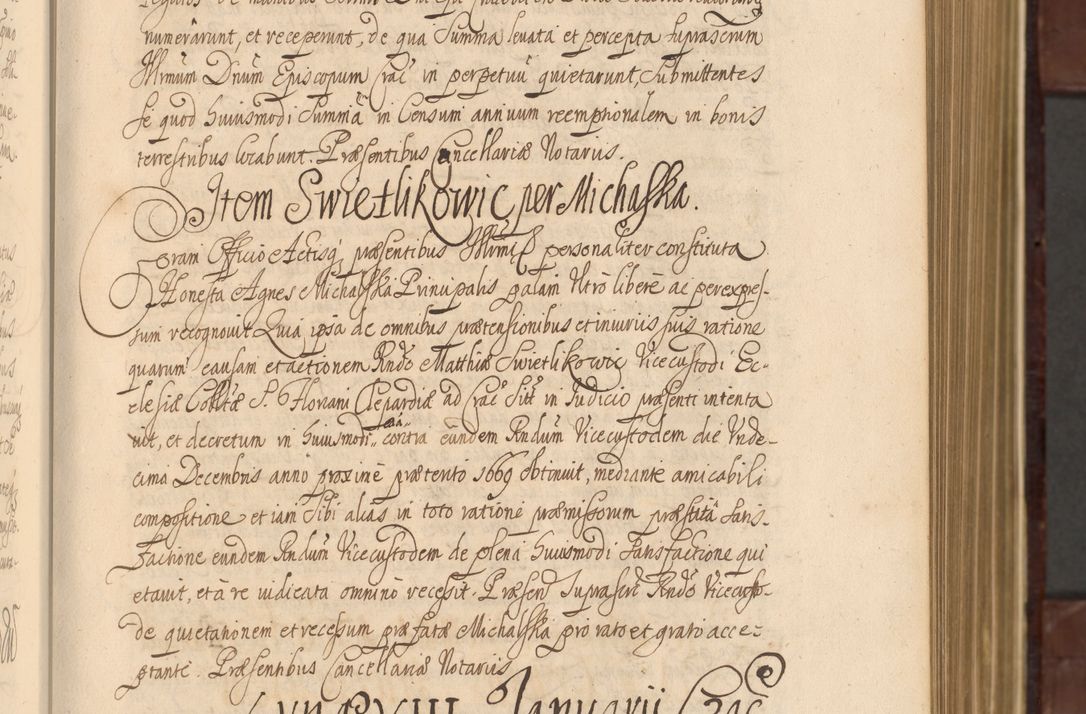 numerarunt, et receperunt, de qua Summa levata et percepta suprascrium
Illrmum Dnum Episcopum Crac in perpetuu quietarunt, Submittentes
se quod huiusmodi Summa in Censum annuum reemptionalem in bonis
terrestribus locabunt. Præsentibus Cancellariæ Notariis.
Item Swietlikowic per Michalska.
Coram Officio Actisq præsentibus personaliter constituta
Honesta Agnes Michalska Principalis palam Ultrò liberè ac perexpes-
sum recognovit Quia ipsa de omnibus prætensionibus et iniuriis suis ratione
quarum causam et actionem Rndo Matthiæ Swietlikowic Vicecustodi Ec-
clesiæ Colltæ S. Floriani Clepardiæ ad Crac Sitt in Iudicio præsenti intenta
vit, et decretum in huiusmodi contra eundem Rndum Vicecustodem die Unde-
cima Decembris anno proximè præterito 1669 obtinuit, mediante amicabili
compositione et iam Sibi aliàs in toto ratione præmissorum præstitâ Satis-
factione eundem Rndum Vicecustodem de plena huiusmodi Satisfactione qui
etavit, et à re iudicata omninò recessit. Præsen Suprascri Rndo Vicecusto-
de quietationem et recessum præfatæ Michalska pro rato et grato acce-
ptante. Præsentibus Cancellariæ Notariis
Lunæ XIII Ianuarii Crac